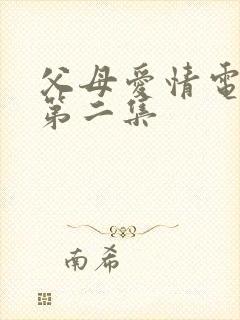 父母愛情電
第二集
南希